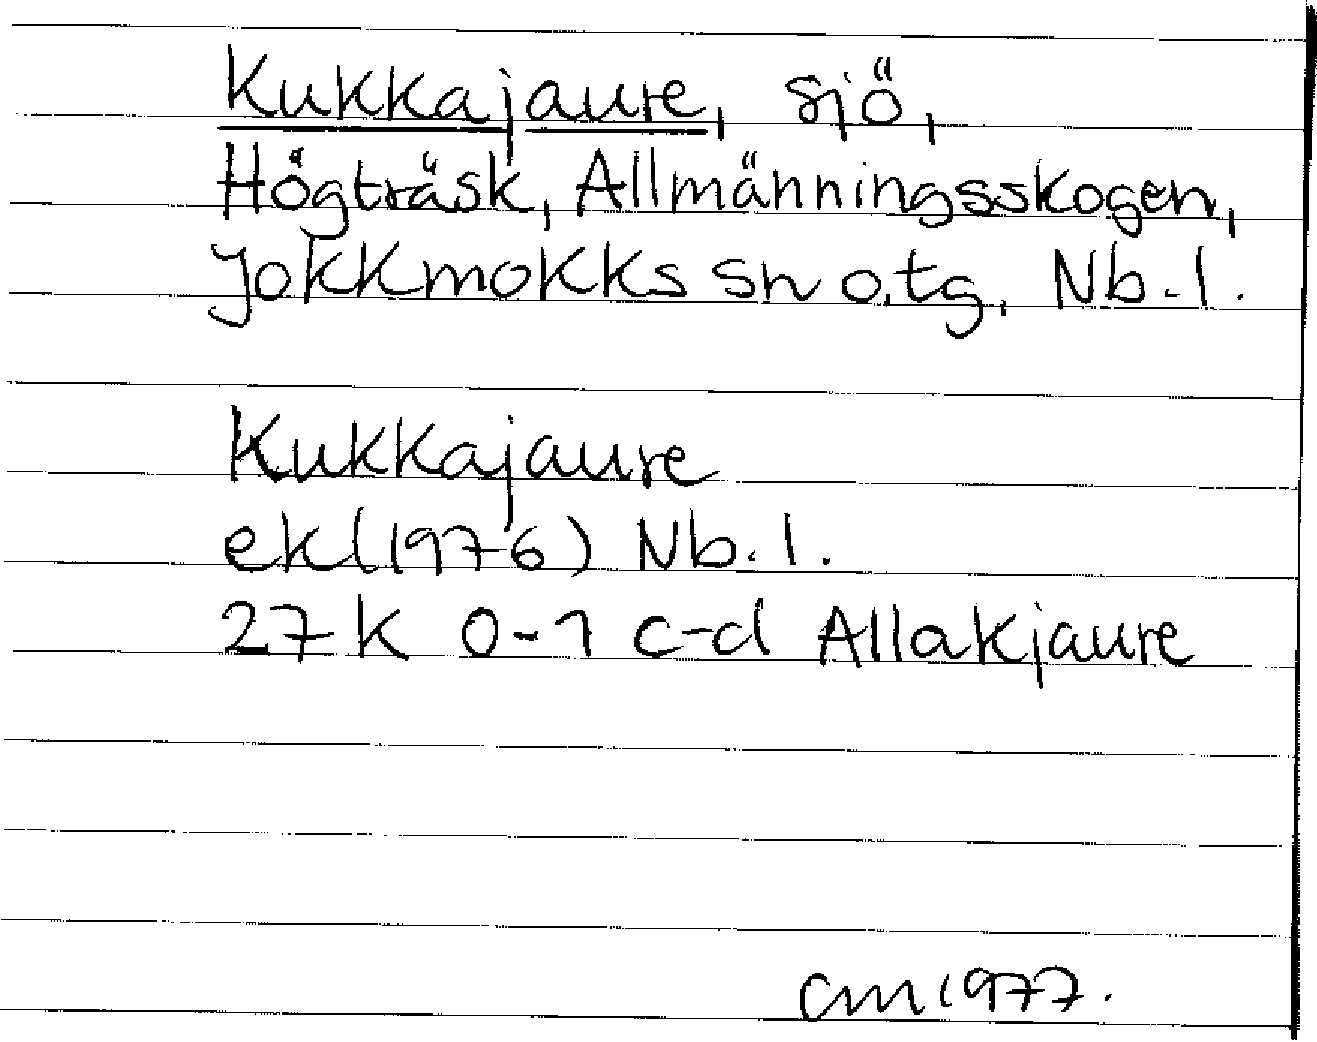 Kukkajaure, sjö,
Högträsk, Allmänningsskogen,
Jokkmokks sn o.tg, Nb.l.
Kukkajaure
ekl(1976) Nb.l.
27 K 0-1 c-d Allakjaure
CM 1977.